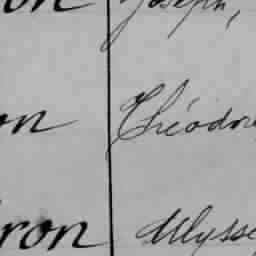 on Joseph,
on Théodore
ron Ulysse